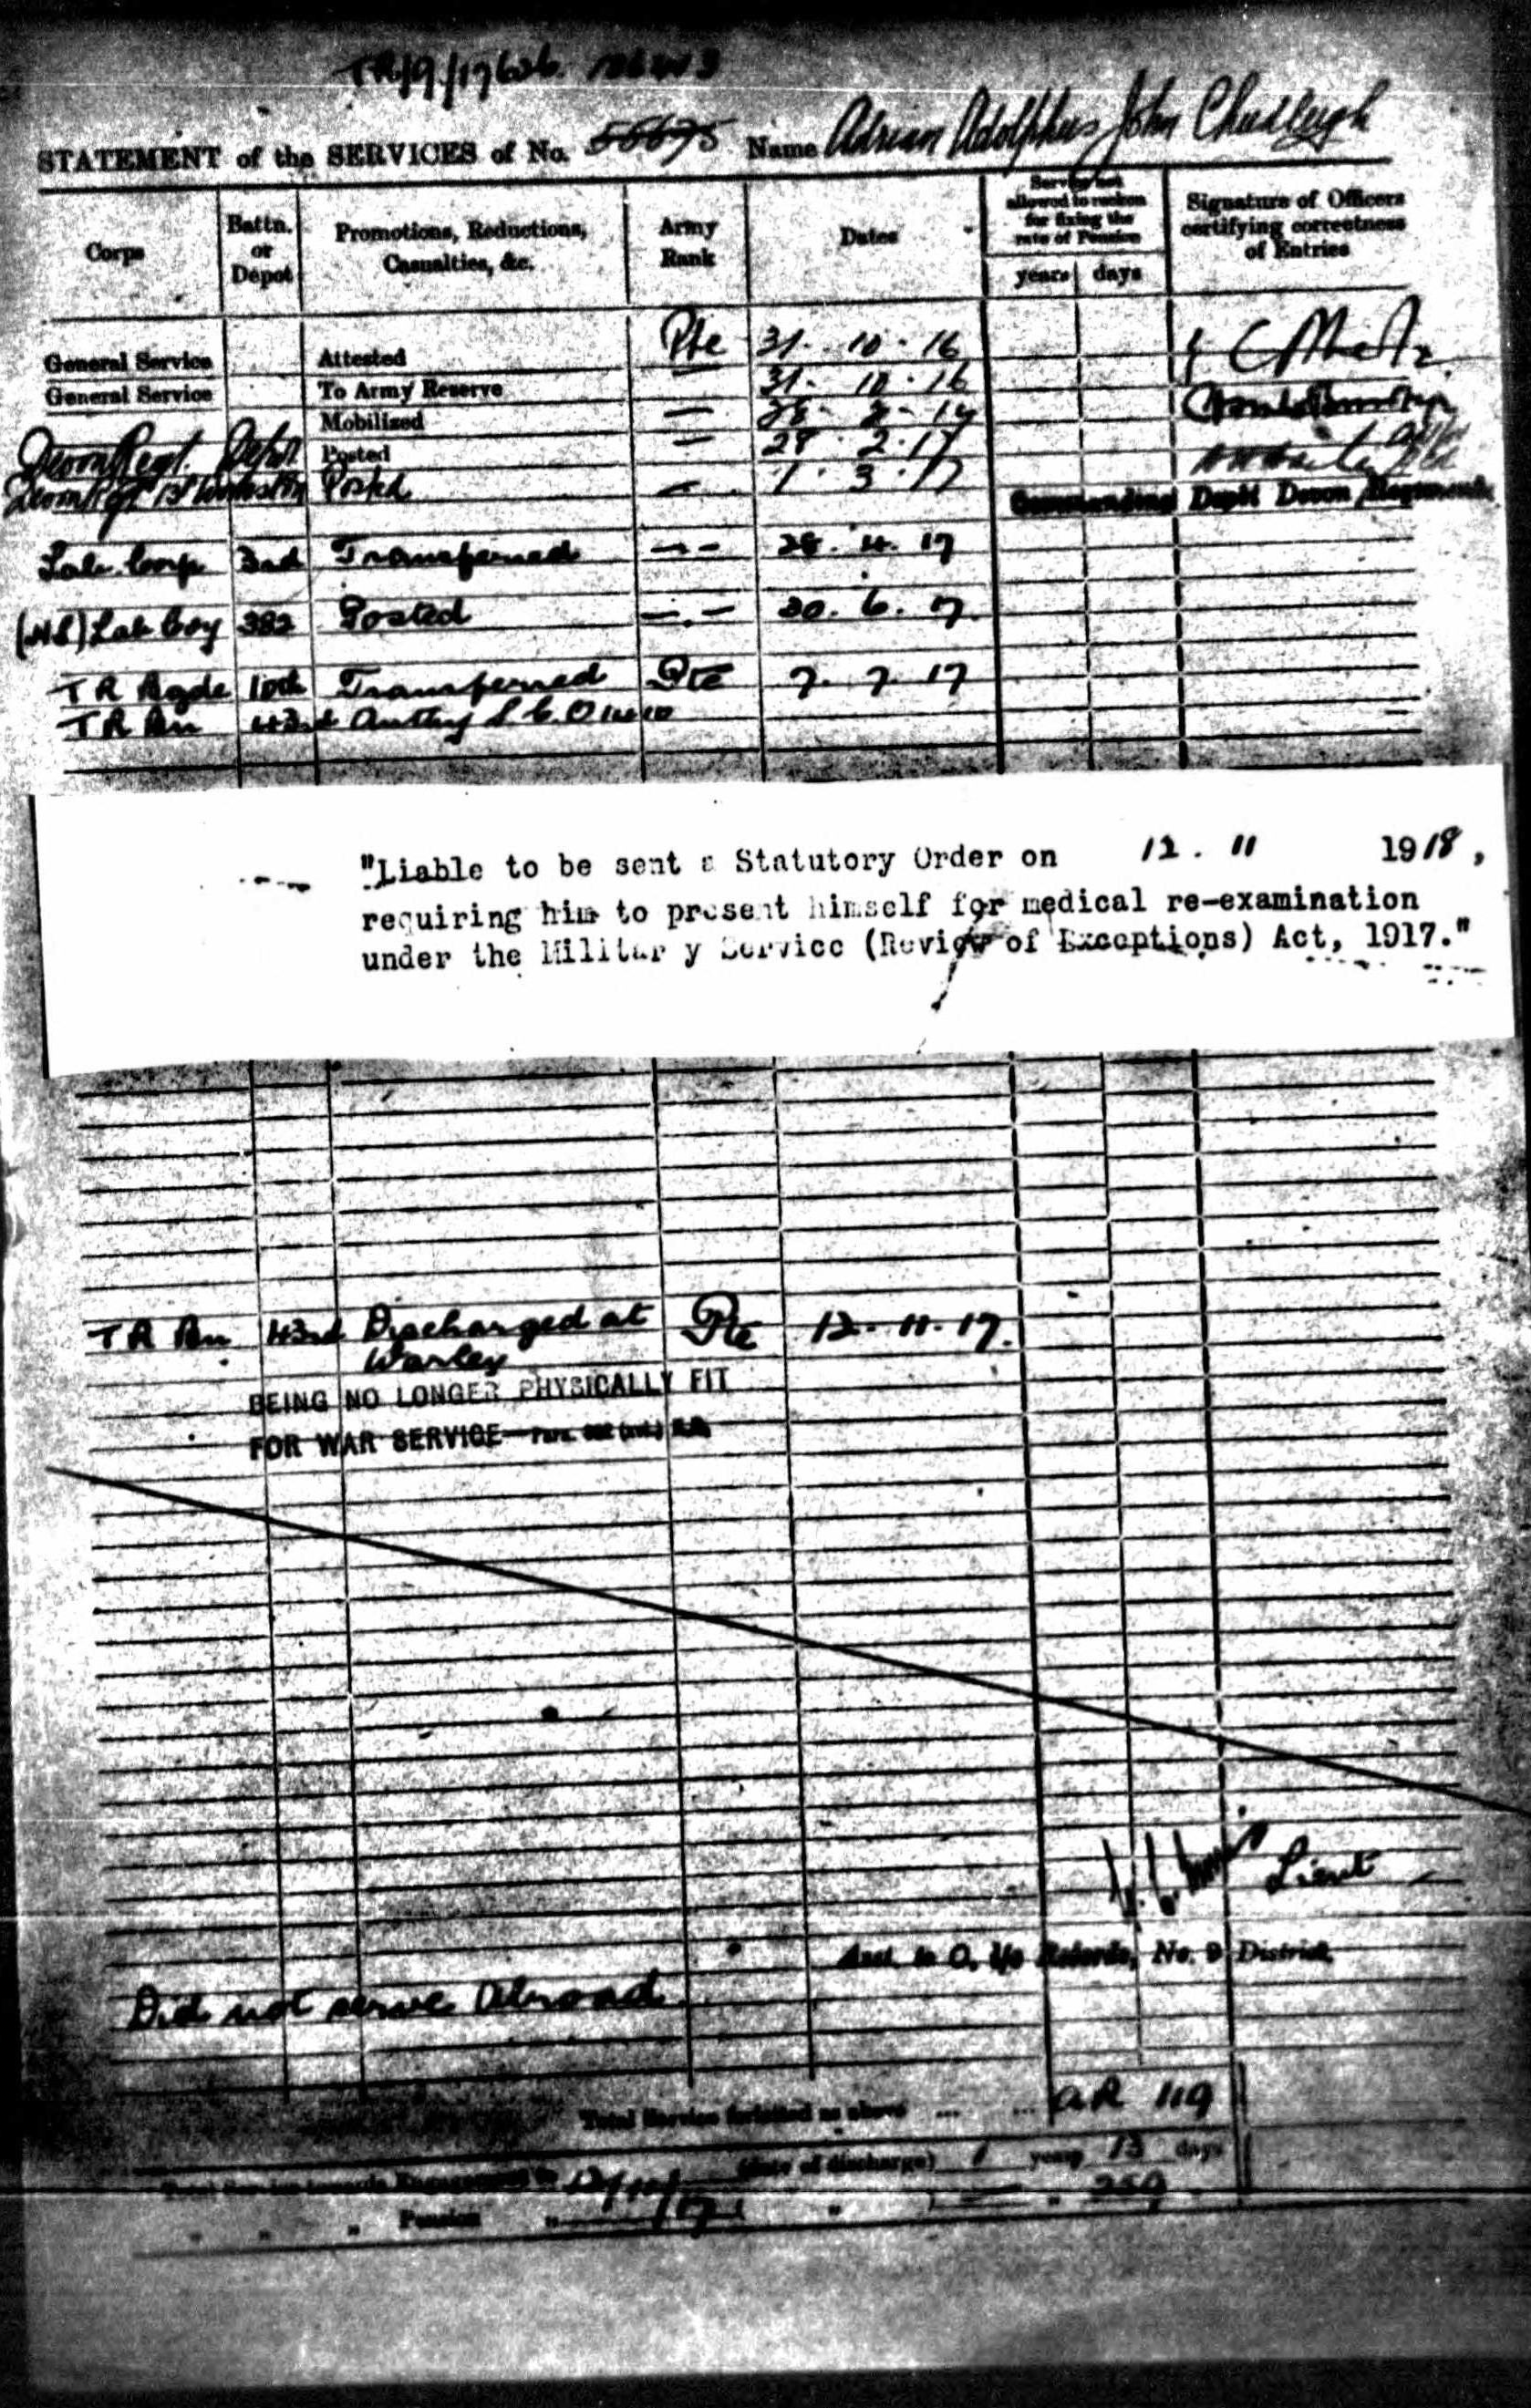 TR/9/17626
STATEMENT of the SERVICES of No. 56675 Name Adrian Adolphus John Chudleigh
Corps
Battn. or Depot
Promotions, Reductions, Casualties, &c.
Army Rank
Dates
Service not allowed to reckon for fixing the rate of Pension
years days
Signature of Officers certifying correctness of Entries
General Service Attested Pte 31. 10. 16
General Service To Army Reserve 31. 10. 16
Mobilized — 28. 2. 17
Devon Regt. Depot Posted — 28. 2. 17
Devon Regt Posted — 1. 3. 17
Commanding Depôt Devon Regiment
Lab. Corps 3rd Transferred — 28. 4. 17
Lab Coy 382 Posted — 30. 6. 17
T R Bgde 10th Transferred Pte 7. 7. 17
T R Bn 43rd
"Liable to be sent a Statutory Order on 12. 11 1918,
requiring him to present himself for medical re-examination
under the Militar y Service (Review of Exceptions) Act, 1917."
T R Bn 43rd Discharged at Pte 12. 11. 17.
Warley
BEING NO LONGER PHYSICALLY FIT
FOR WAR SERVICE
Lieut
Asst. to O. i/c Records, No. 9 District.
Did not serve Abroad
Total Service forfeited as above ... ... AR 119
Total Service towards Engagement to 12/11/17 (date of discharge) 1 years 13 days
" " " Pension " " — " 259